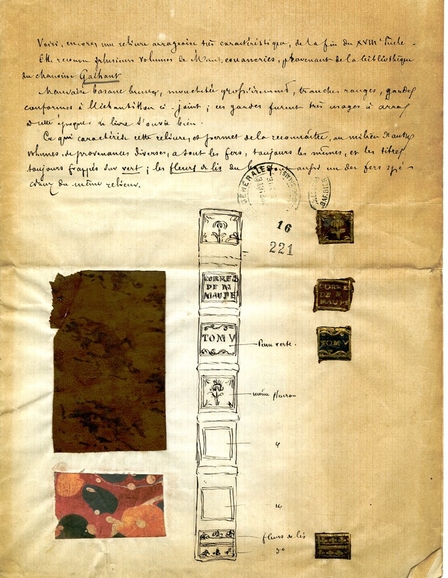 Voici, encore une reliure arrageoise très caractéristique, de la fin du XVIIIe siècle.
Elle recouvre plusieurs volumes de provenant de la bibliothèque
du chanoine
Mauvaise basane brune, mouchetée grossièrement, tranches rouges, gardes
conformes à l'échantillon ci-joint; ces gardes furent très usagées à Arras
à cette époque. Le livre s'ouvre bien.
Ce qui caractérise cette reliure, et permet de la reconnaître, au milieu d'autres
volumes, de provenances diverses, ce sont les fers, toujours les mêmes, et les titres
toujours frappés sur vert; les fleurs de lis du bas sont aussi un des fers spé-
ciaux du même relieur.
GÉNÉRALES
16
221
CORRES
DE M
MAUPE
CORRE
DE M
MAUPE
TOM V
TOM V
peau verte.
même fleuron
fleurs de lis
do